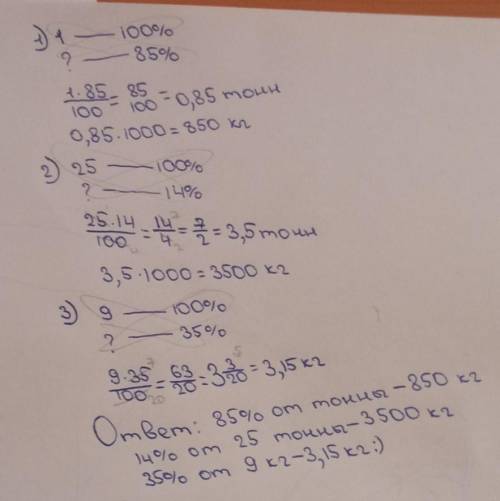 1) 1 — 100%
? — 85%
1·85/100 = 85/100 = 0,85 тонн
0,85·1000 = 850 кг
2) 25 — 100%
? — 14%
25·14/100 = 14/4 = 7/2 = 3,5 тонн
3,5·1000 = 3500 кг
3) 9 — 100%
? — 35%
9·35/100 = 63/20 = 3 3/20 = 3,15 кг
Ответ: 85% от тонны – 850 кг
14% от 25 тонны – 3500 кг
35% от 9 кг – 3,15 кг:)